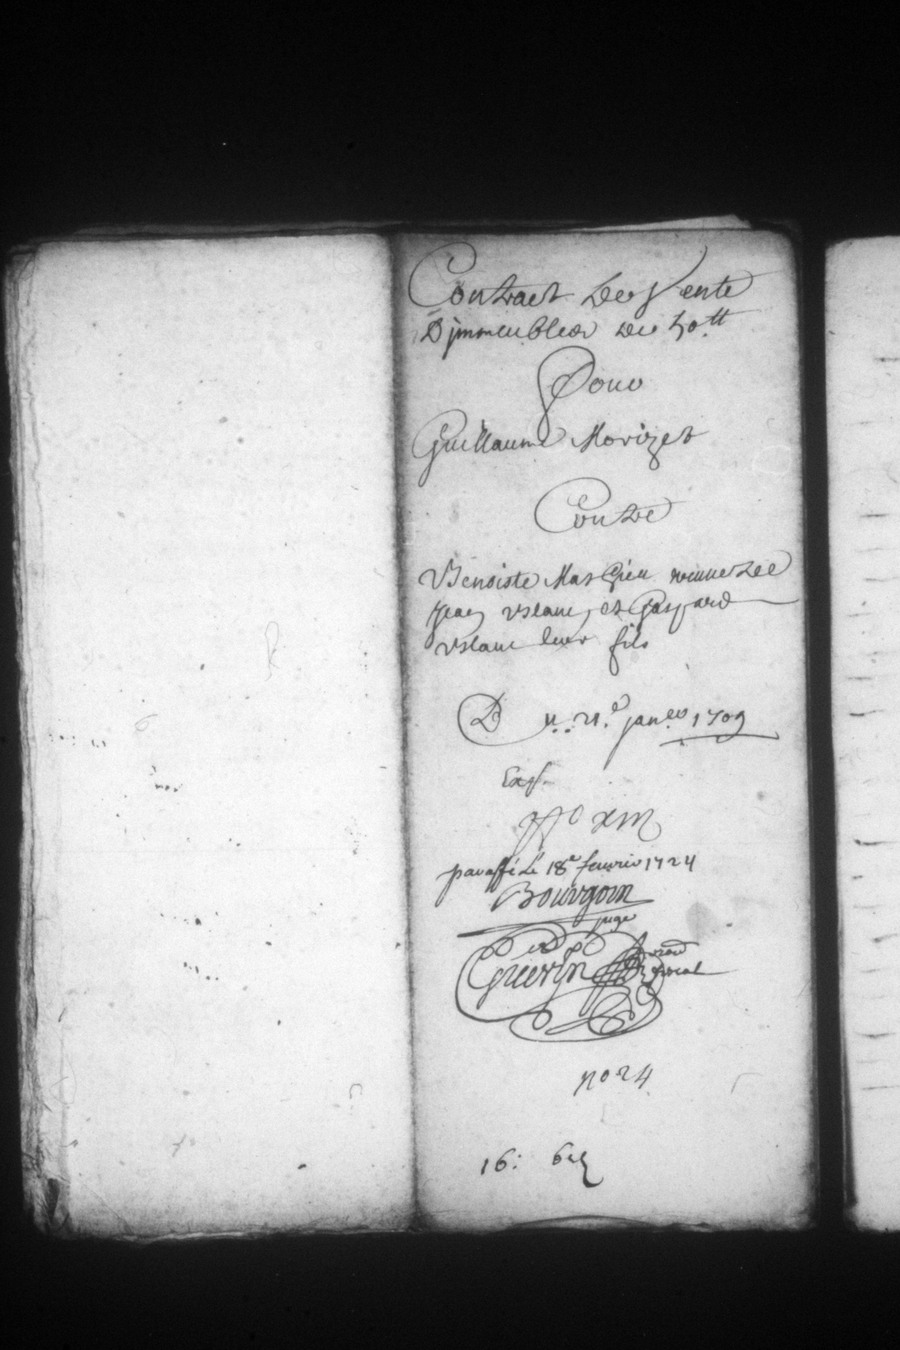 Contract De Vente
D'jmmeubles De 50.tt
Pour
Guillaume Morizet
Contre
Benoiste Mathieu veuue de
Jean et Gaspard
leur fils
Du 21.e januer 1709
Exp.
paraffé Le 18e feurier 1724
Bourgoin
juge
Guerin
fiscal
no 24
16: